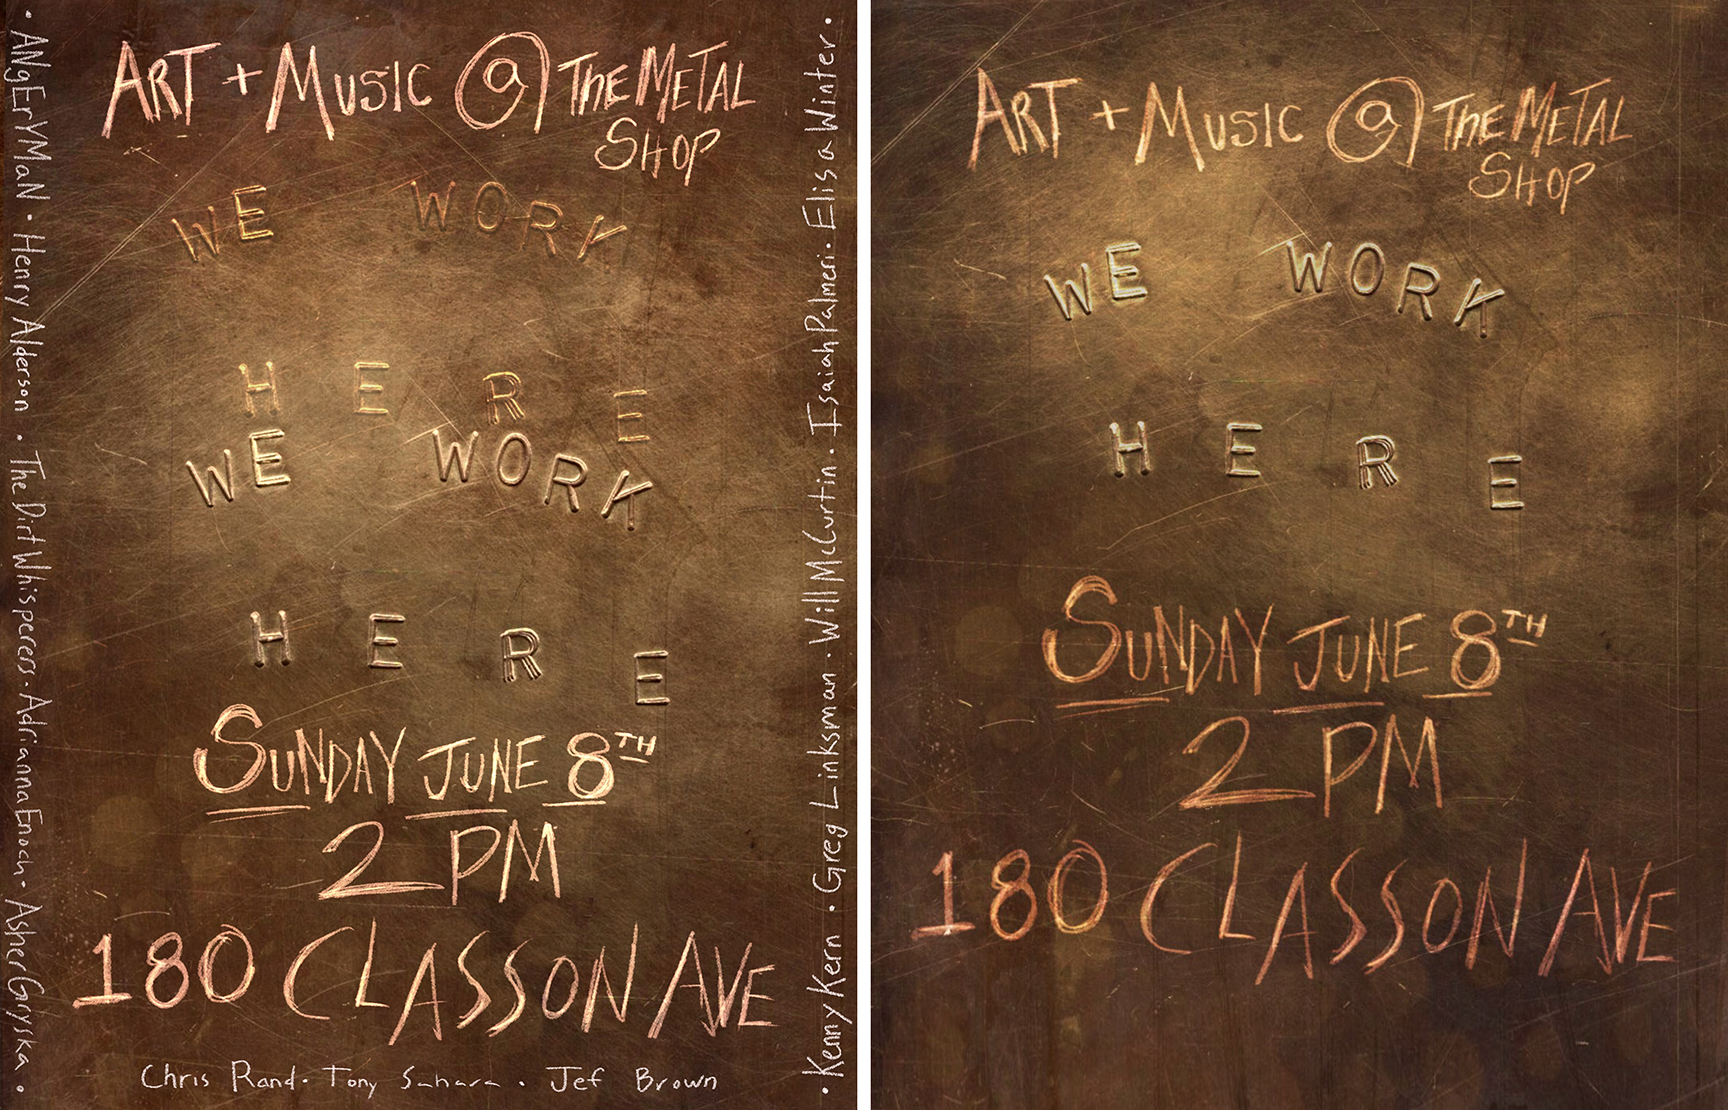 ART + MUSIC @ THE METAL
SHOP
WE WORK
HERE
WE WORK
HERE
SUNDAY JUNE 8TH
2 PM
180 CLASSON AVE
• ANgErYMaN • Henry Alderson • The Dirt Whisperers • Adrianna Enoch • Asher Gryska •
Chris Rand • Tony Sahara • Jef Brown
• Kenny Kern • Greg Linksman • Will McCurtin • Isaiah Palmeri • Elisa Winter •
ART + MUSIC @ THE METAL
SHOP
WE WORK
HERE
SUNDAY JUNE 8TH
2 PM
180 CLASSON AVE